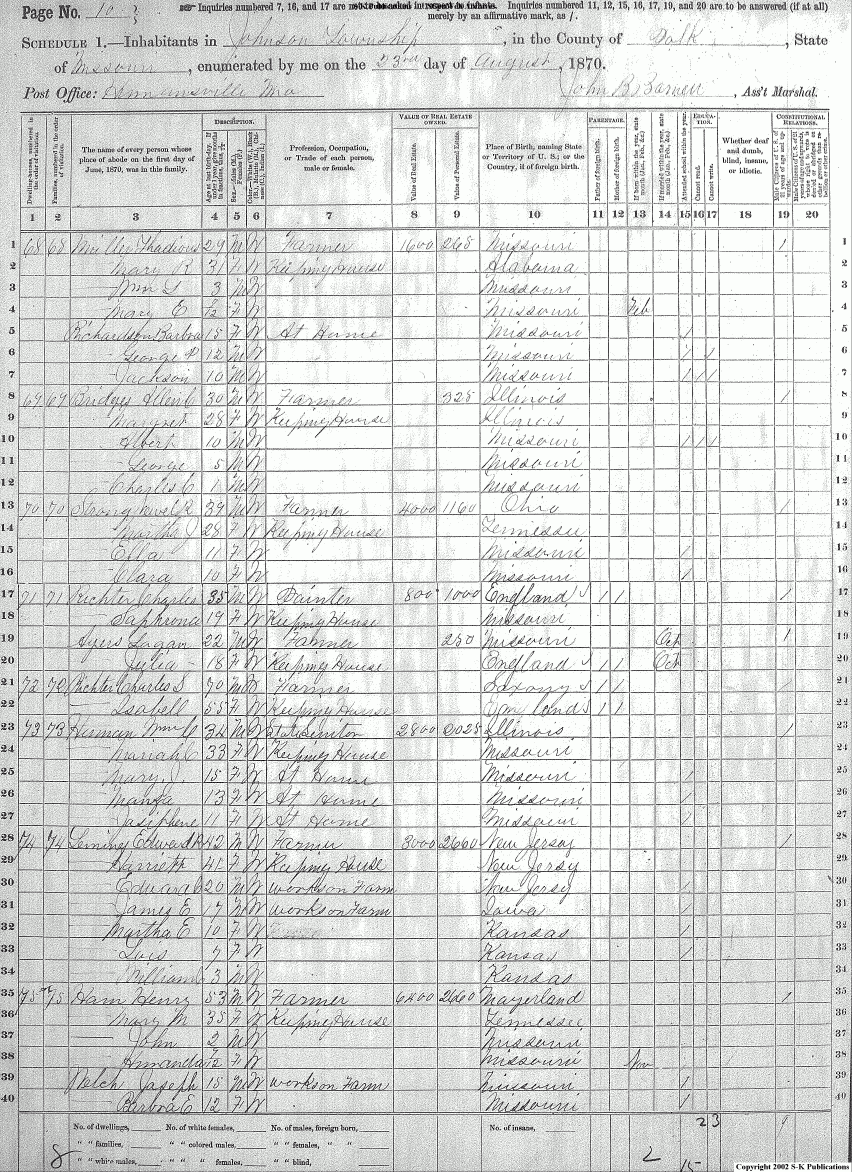 Page No. 10
Inquiries numbered 7, 16, and 17 are not to be asked in respect to infants. Inquiries numbered 11, 12, 15, 16, 17, 19, and 20 are to be answered (if at all)
merely by an affirmative mark, as /.
SCHEDULE 1.—Inhabitants in Johnson Township, in the County of Polk, State
of Missouri, enumerated by me on the 23rd day of August, 1870.
Post Office: Mo John B. , Ass't Marshal.
DESCRIPTION. VALUE OF REAL ESTATE OWNED. PARENTAGE. EDUCATION. CONSTITUTIONAL RELATIONS.
Dwelling-houses, numbered in the order of visitation.
Families, numbered in the order of visitation.
The name of every person whose place of abode on the first day of June, 1870, was in this family.
Profession, Occupation, or Trade of each person, male or female.
Value of Real Estate.
Value of Personal Estate.
Place of Birth, naming State or Territory of U. S.; or the Country, if of foreign birth.
Father of foreign birth.
Mother of foreign birth.
Attended school within the year.
Cannot read.
Cannot write.
Whether deaf and dumb, blind, insane, or idiotic.
1 2 3 4 5 6 7 8 9 10 11 12 13 14 15 16 17 18 19 20
1 68 68 Miller Thadious 29 M W Farmer 1600 268 Missouri 1 1
2 Mary R 31 F W Keeping House Alabama 2
3 Wm 3 M W Missouri 3
4 Mary E F W Missouri Feb 4
5 Richardson Barbra 15 F W At Home Missouri / 5
6 George 12 M W Missouri / / 6
7 Jackson 10 M W Missouri / / / 7
8 69 69 Bridges Allen C 30 M W Farmer 325 Illinois 1 8
9 Margret 28 F W Keeping House Illinois 9
10 Albert 10 M W Missouri / / / 10
11 George 5 M W Missouri 11
12 Charles C 1 M W Missouri 12
13 70 70 Strong 39 M W Farmer 4000 1160 Ohio 1 13
14 Martha J 28 F W Keeping House Tennessee 14
15 Ella 11 F W Missouri / 15
16 Clara 10 F W Missouri / 16
17 71 71 Richter Charles 35 M W Painter 800 1000 England / / 1 17
18 Saphrona 19 F W Keeping House Missouri 18
19 Ayers Logan 22 M W Farmer 250 Missouri Oct 1 19
20 Julia 18 F W Keeping House England / / Oct 20
21 72 72 Richter Charles S 70 M W Farmer Saxony / / 1 21
22 Isabell 55 F W Keeping House England / / 22
23 73 73 Wm C 34 M W 2800 Illinois 1 23
24 Mariah C 33 F W Keeping House Missouri 24
25 Mary J. 15 F W At Home Missouri / 25
26 13 F W At Home Missouri / 26
27 Josephene 11 F W At Home Missouri / 27
28 74 74 Leming Edward R 42 M W Farmer 3000 2660 New Jersey 1 28
29 Harrieth 41 F W Keeping House New Jersy 29
30 Edward 20 M W works on Farm New Jersy / 30
31 James E 17 M W works on Farm Iowa / 31
32 Martha E 10 F W Kansas / 32
33 Lois 7 F W Kansas / 33
34 William 3 M W Kansas 34
35 75 75 Ham Henry 53 M W Farmer 6400 2660 Mayerland 1 35
36 Mary M 35 F W Keeping House Tennessee 36
37 John 2 M W Missouri 37
38 Amanda F W Missouri Nov 38
39 Welch Joseph 15 M W works on Farm Missouri / 39
40 Barbra E 12 F W Missouri / 40
No. of dwellings, No. of white females, No. of males, foreign born, No. of insane, 2 3 9
" " families, " " colored males, " " females, " "
8 " " white males, " " " females, " " blind, 2 15
Copyright 2002 S-K Publications